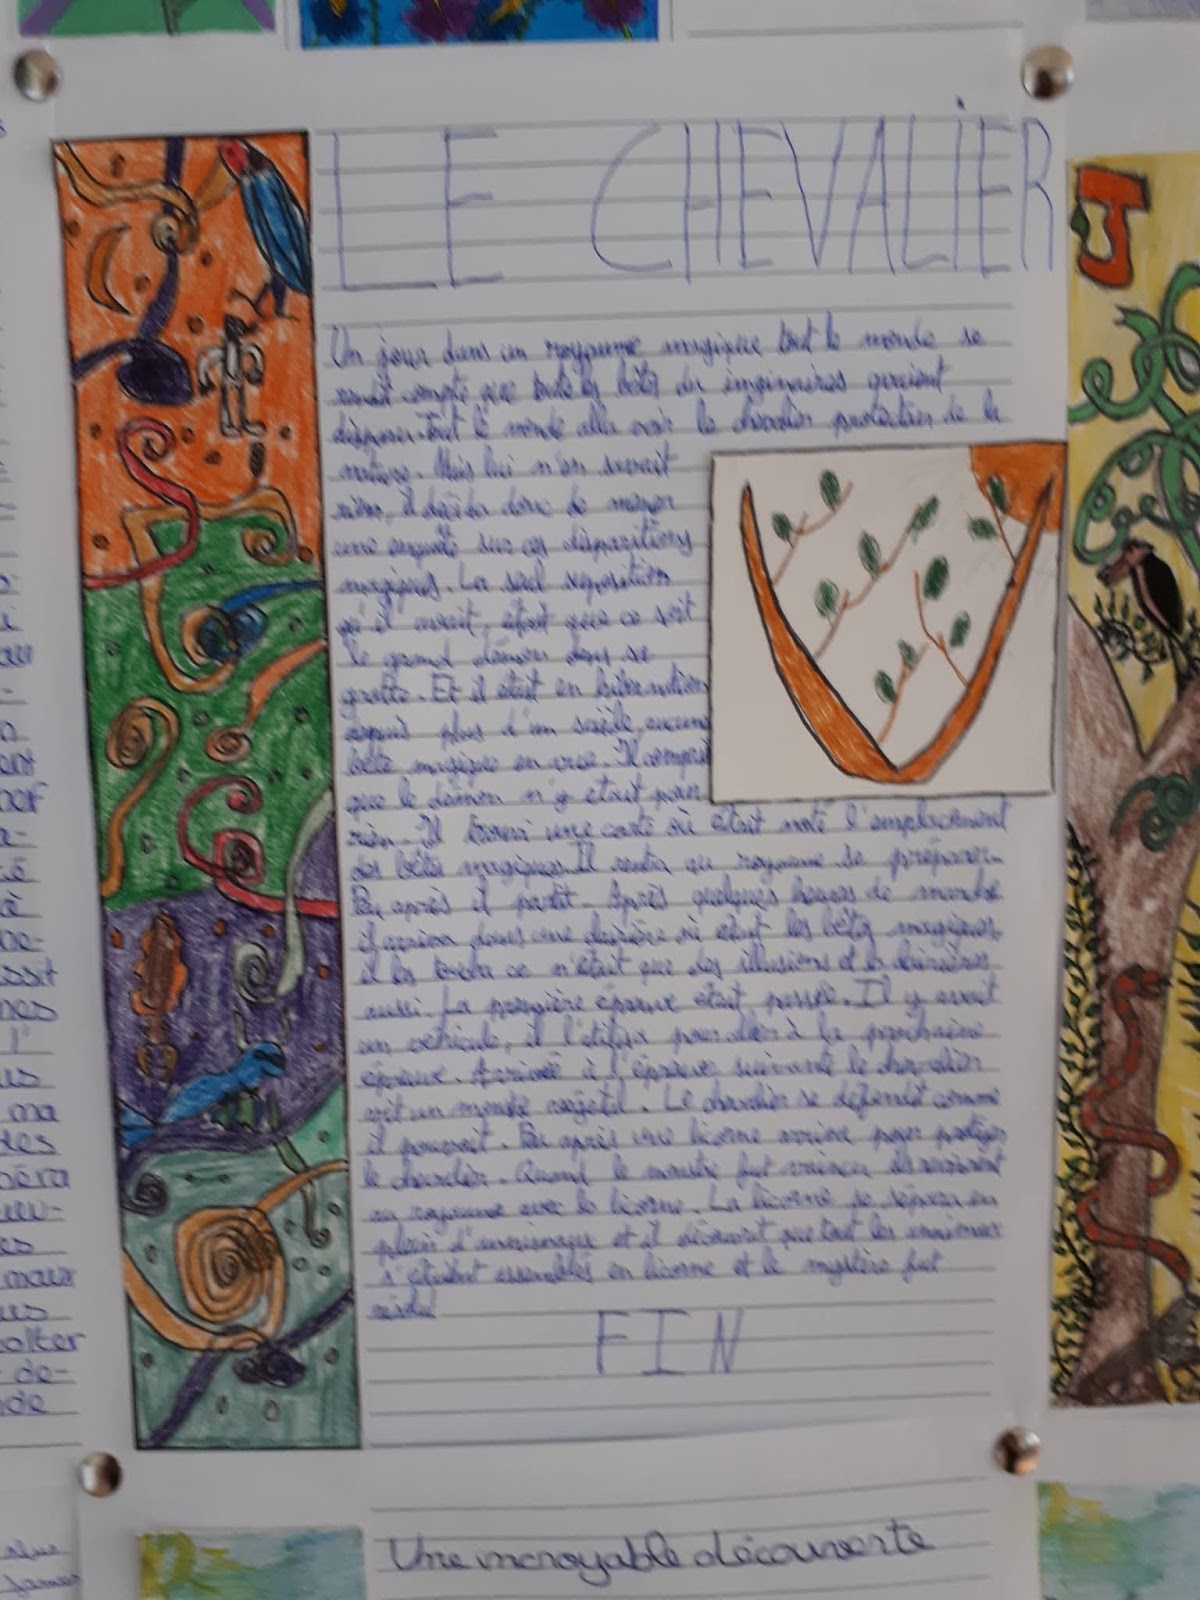 LE CHEVALIER
Un jour dans un royaume magique tout le monde se
rendit compte que toute les bêtes du imginaires avaient
disparu. Tout le monde alla voir le chevalier protecteur de la
nature. Mais lui n'en savait
rien, il décida donc de mener
une enquête sur ces disparitions
magiques. La seul suposition
qu'il avait, était que ce soit
le grand démon dans se
grotte. Et il était en hibernation
depuis plus d'un siècle, aucune
bête magique en vue. Il comprit
que le démon n'y était pour
rien. Il trouva une carte où était noté l'emplacement
des bêtes magiques. Il rentra au royaume se préparer.
Peu après il partit. Après quelques heures de marche
il arriva dans une où était les bêtes magiques
il les toucha ce n'était que des illusions et la
aussi. La première épreuve était passée. Il y avait
un véhicule, il l'utilisa pour aller à la prochaine
épreuve. Arrivée à l'épreuve suivante le chevalier
vit un monstre végétal. Le chevalier se défendit comme
il pouvait. Peu après une licorne arriva pour protéger
le chevalier. Quand le monstre fut vaincu ils revinrent
au royaume avec la licorne. La licorne se sépara en
plein d'animaux et il découvrit que tout les animaux
s'étaient assemblés en licorne et le mystère fut
résolu
FIN
Une incroyable découverte